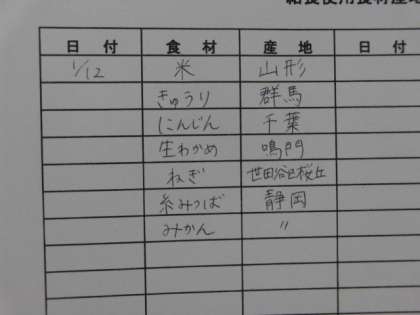 給食使用食材産地
日 付 食 材 産 地 日 付
1/12 米 山形
きゅうり 群馬
にんじん 千葉
生わかめ 鳴門
ねぎ 世田谷区桜丘
糸みつば 静岡
みかん 〃